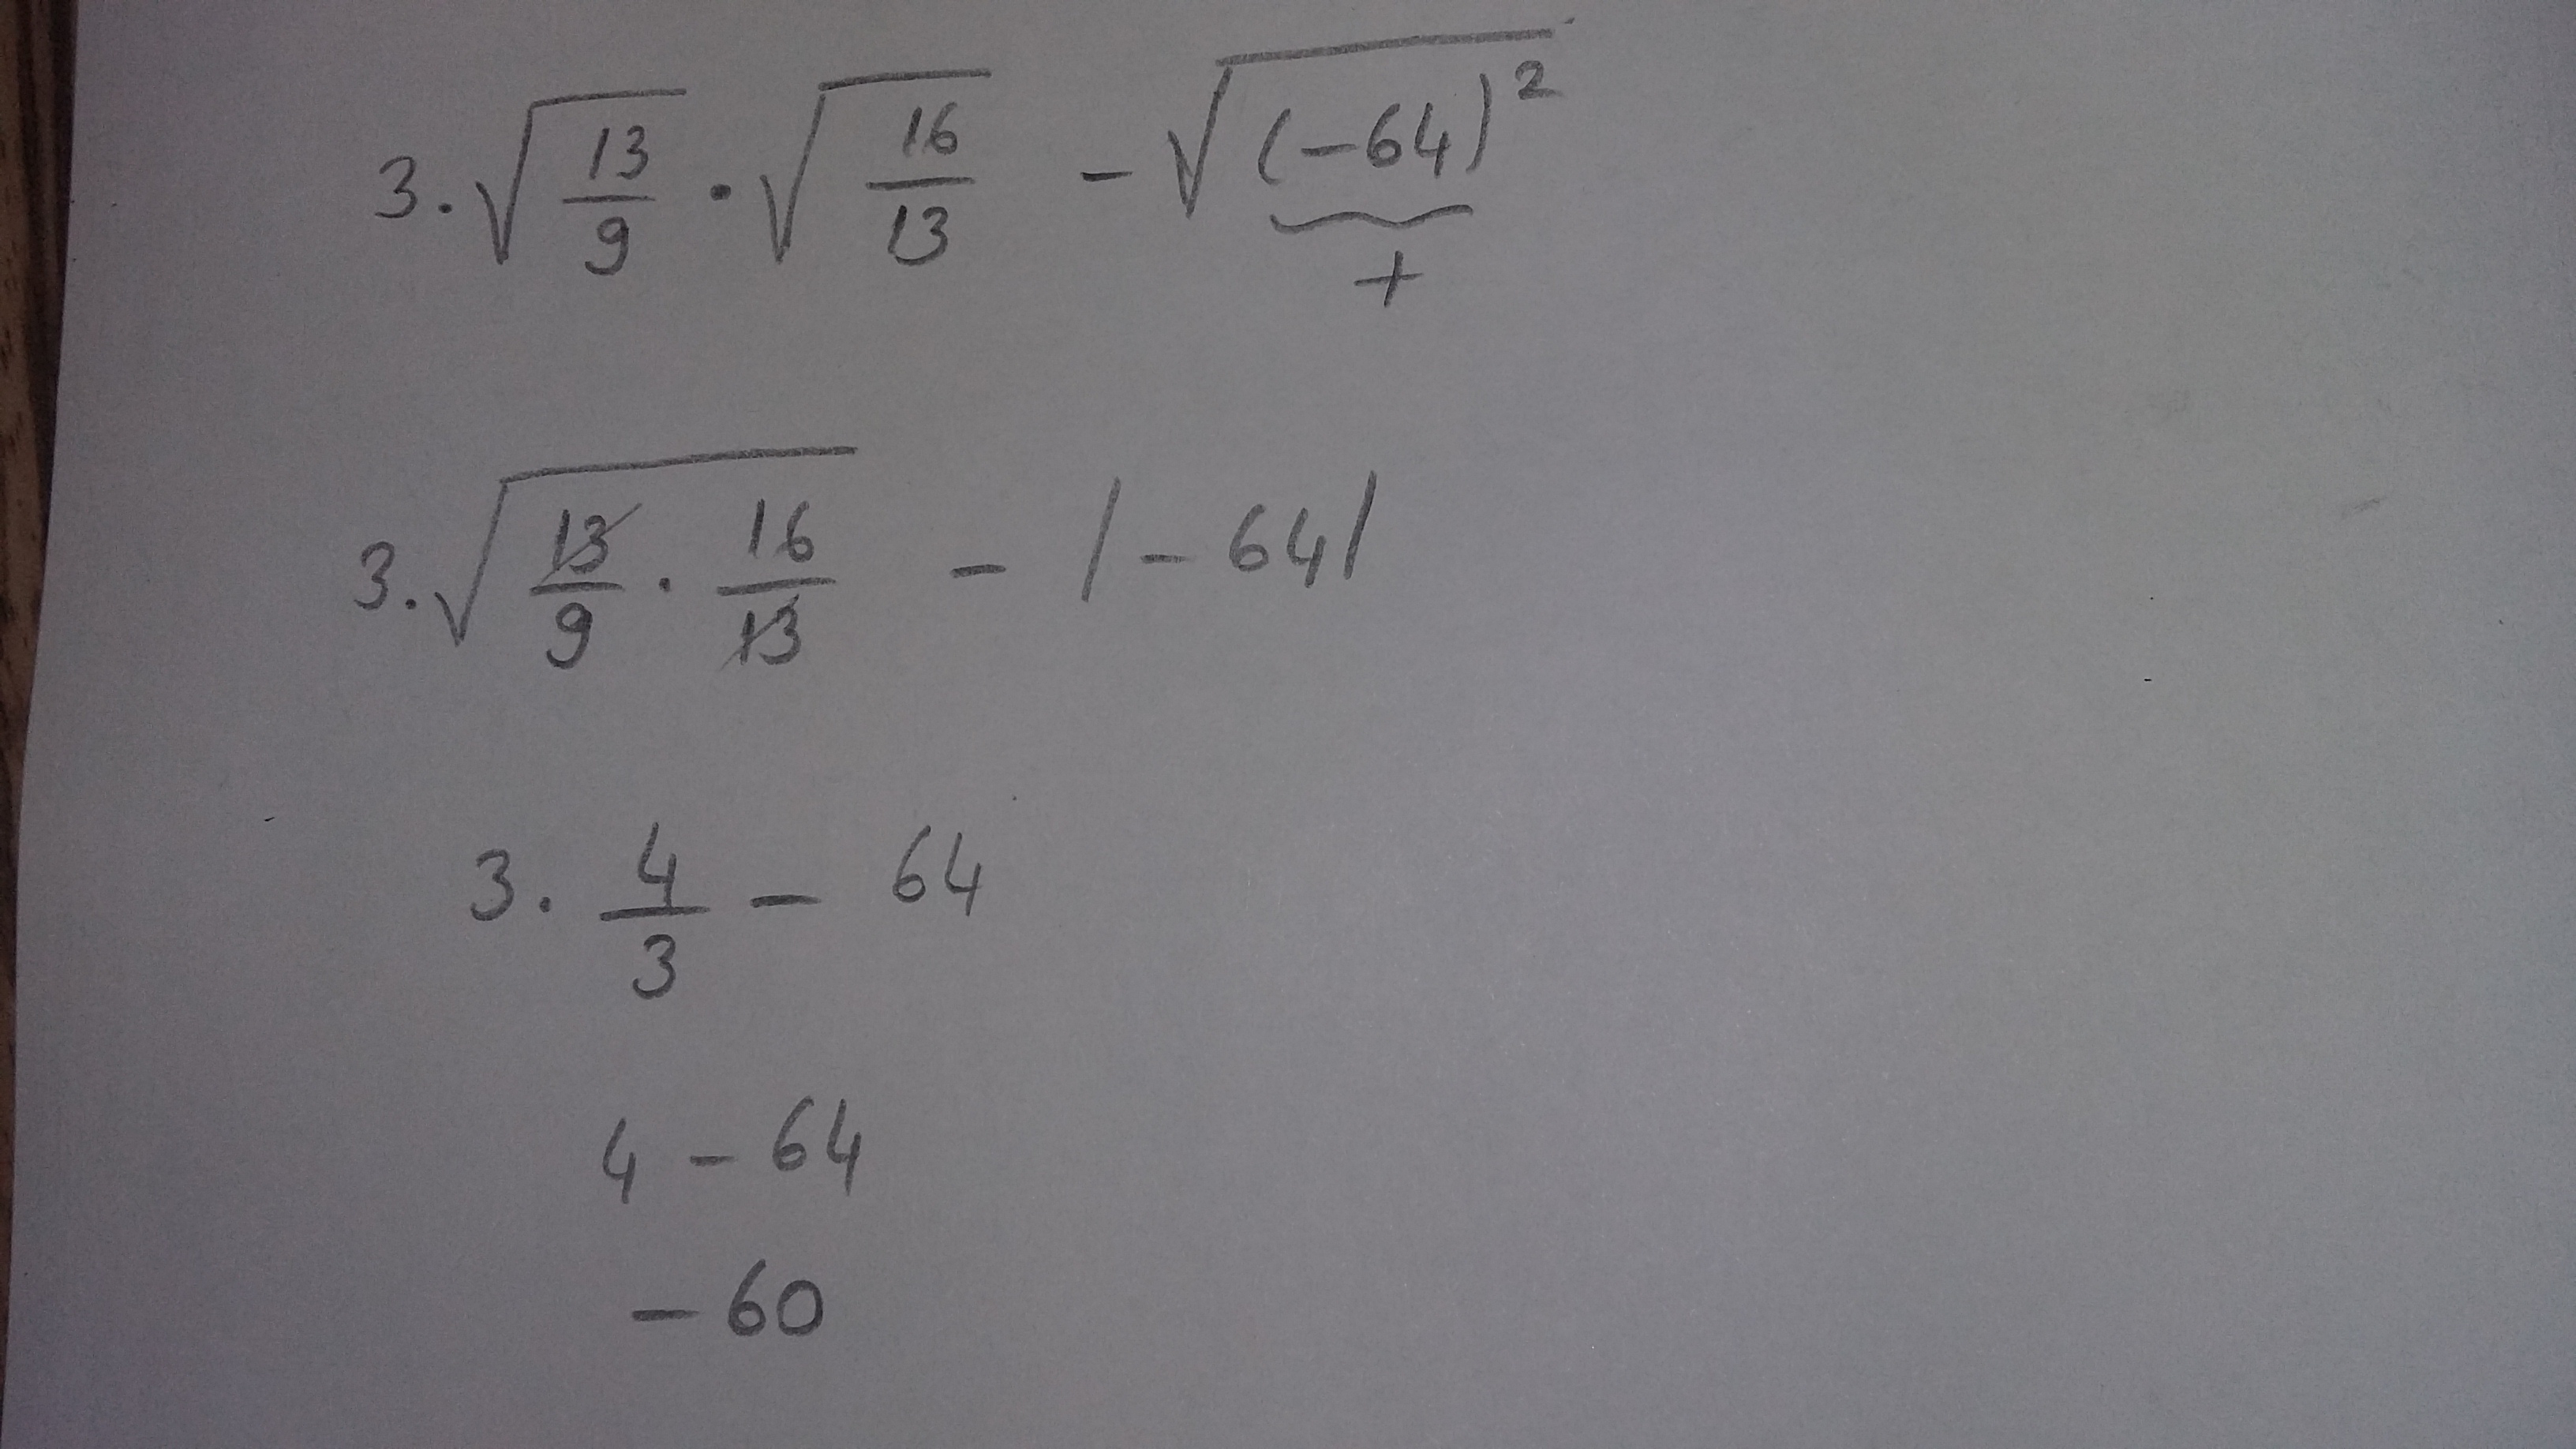 3. √(13/9) · √(16/13) - √((-64)²)
+
3. √(13/9 · 16/13) - |-64|
3. 4/3 - 64
4 - 64
- 60